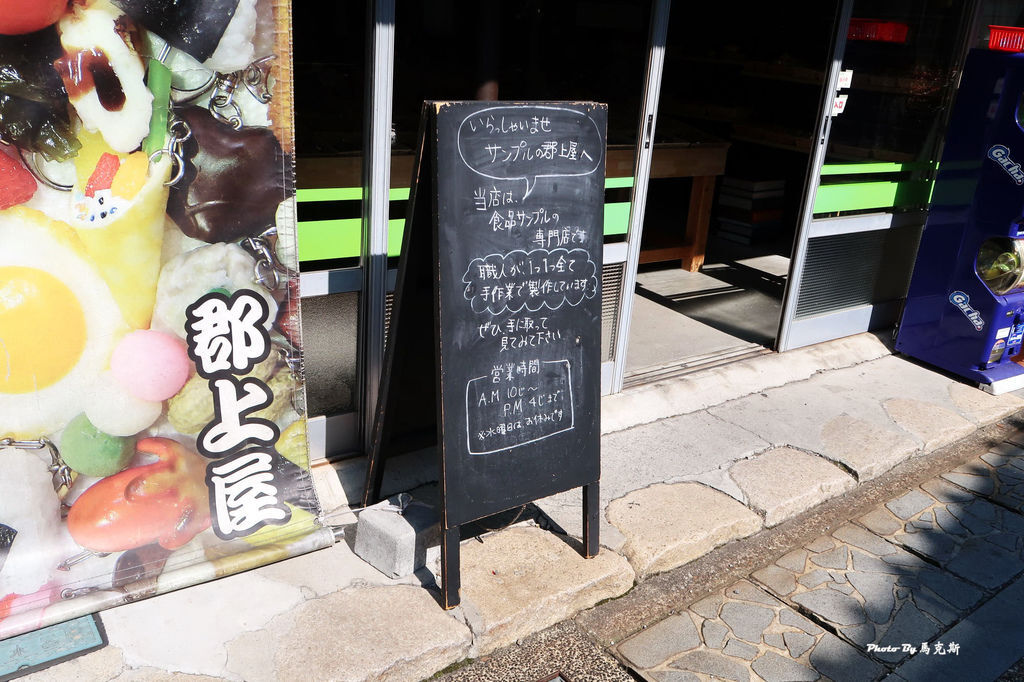 いらっしゃいませ
サンプルの郡上屋へ
当店は、
食品サンプルの
専門店です
職人が、1つ1つ全て
手作業で製作しています
ぜひ、手に取って
見てみて下さい
営業時間
A.M 10じ〜
P.M 4じまで。
※水曜日は、お休みです
郡上屋
Gacha
Gacha
Photo By 馬克斯